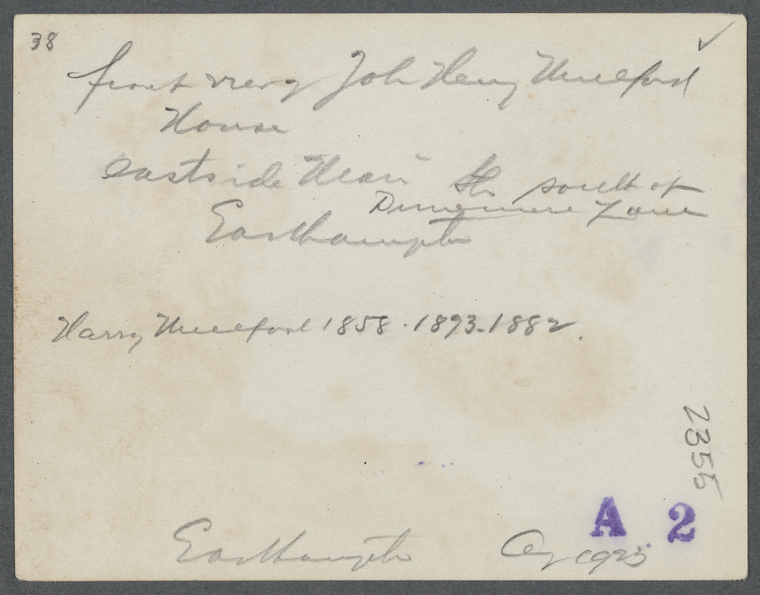 38
front view John Henry Mulford
House
eastside Main St south of
Dunemere Lane
Easthampton
Harry Mulford 1858 . 1893-1882.
2355
A 2
Easthampton Aug 1925